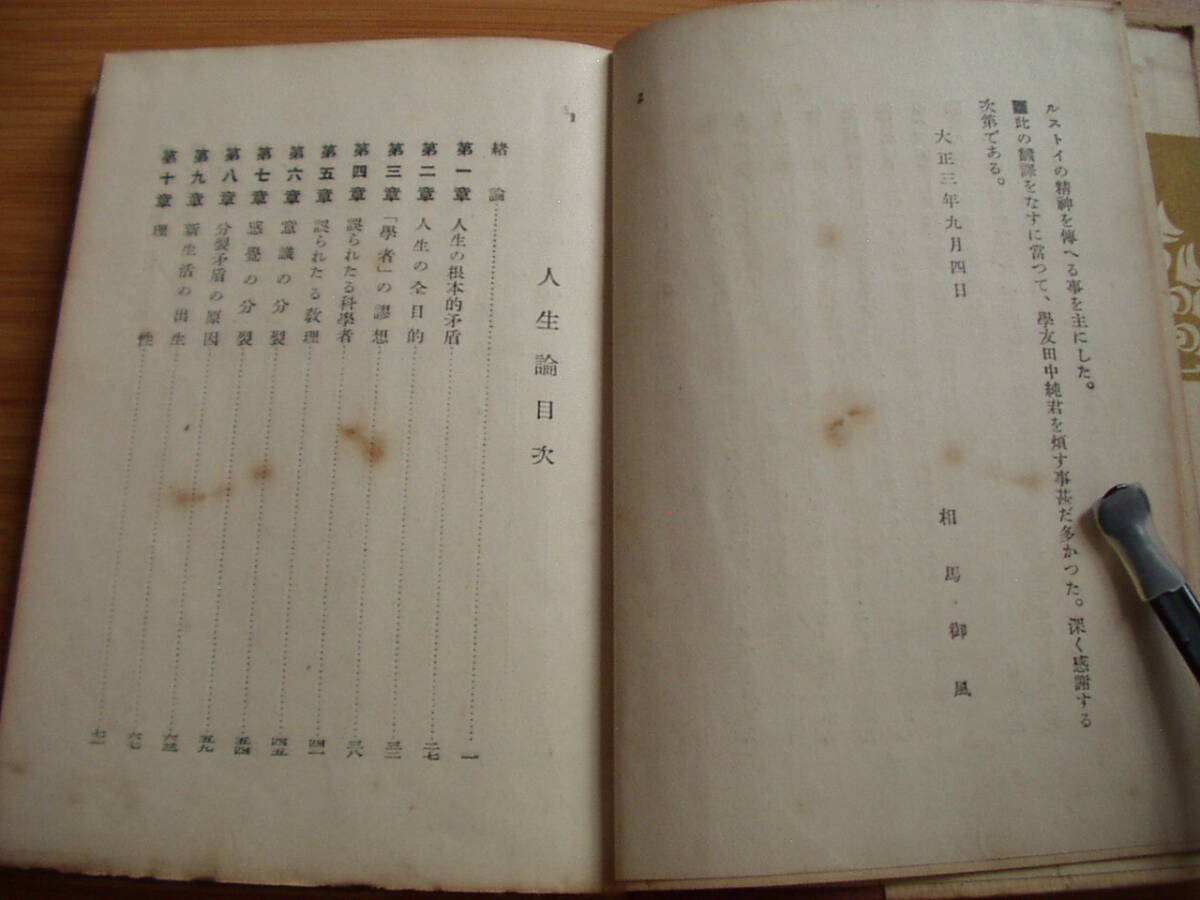 ルストイの精神を傳へる事を主にした。
此の飜譯をなすに當つて、學友田中純君を煩す事甚だ多かつた。深く感謝する
次第である。
大正三年九月四日
相馬御風
2
1
人生論目次
緒論 一
第一章 人生の根本的矛盾 二七
第二章 人生の全目的 三二
第三章 「學者」の謬想 三八
第四章 誤られたる科學者 四一
第五章 誤られたる教理 四五
第六章 意識の分裂 五四
第七章 感覺の分裂 五九
第八章 分裂矛盾の原因 六三
第九章 新生活の出生 六七
第十章 理性 七一